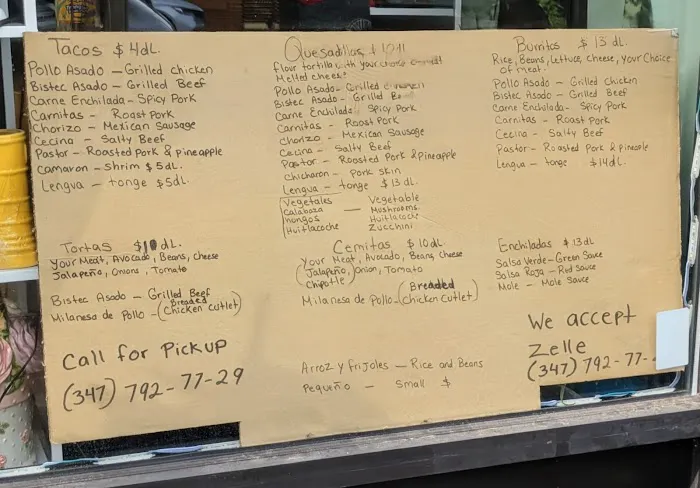 Tacos $4dL.
Pollo Asado — Grilled chicken
Bistec Asado - Grilled Beef
Carne Enchilada - Spicy Pork
Carnitas - Roast Pork
Chorizo - Mexican Sausage
Cecina — Salty Beef
Pastor - Roasted Pork & pineapple
Camaron - shrim $5dL.
Lengua — tonge $5dL.
Quesadillas $10dL
flour tortilla with your choise
Melted cheese
Pollo Asado - Grilled
Bistec Asado - Grilled
Carne Enchilada - Spicy Pork
Carnitas - Roast Pork
Chorizo - Mexican Sausage
Cecina - Salty Beef
Pastor - Roasted Pork & Pineapple
Chicharon - Pork Skin
Lengua — tonge $13 dL.
Vegetales — Vegetable
Calabaza Mushrooms
hongos Huitlacoche
Huitlacoche Zucchini
Burritos $13 dL.
Rice, Beans, Lettuce, cheese, your Choice
of meat.
Pollo Asado - Grilled Chicken
Bistec Asado - Grilled Beef
Carne Enchilada - Spicy Pork
Carnitas - Roast Pork
Cecina - Salty Beef
Pastor - Roasted Pork & pineaple
Lengua - tonge $14dL.
Tortas $10 dL.
Your Meat, Avocado, Beans, cheese
Jalapeño, Onions, Tomato
Bistec Asado - Grilled Beef
Milanesa de Pollo - (Breaded Chicken Cutlet)
Cemitas $10dL.
Your Meat, Avocado, Beans, cheese
(Jalapeño) Onion, Tomato
Chipotle
Milanesa de Pollo - (Breaded Chicken cutlet)
Enchiladas $13dL
Salsa Verde - Green Sauce
Salsa Roja - Red Sauce
Mole - Mole Sauce
Call for Pickup
(347) 792-77-29
Arroz y Frijoles — Rice and Beans
Pequeño — Small $
We accept
Zelle
(347) 792-77-